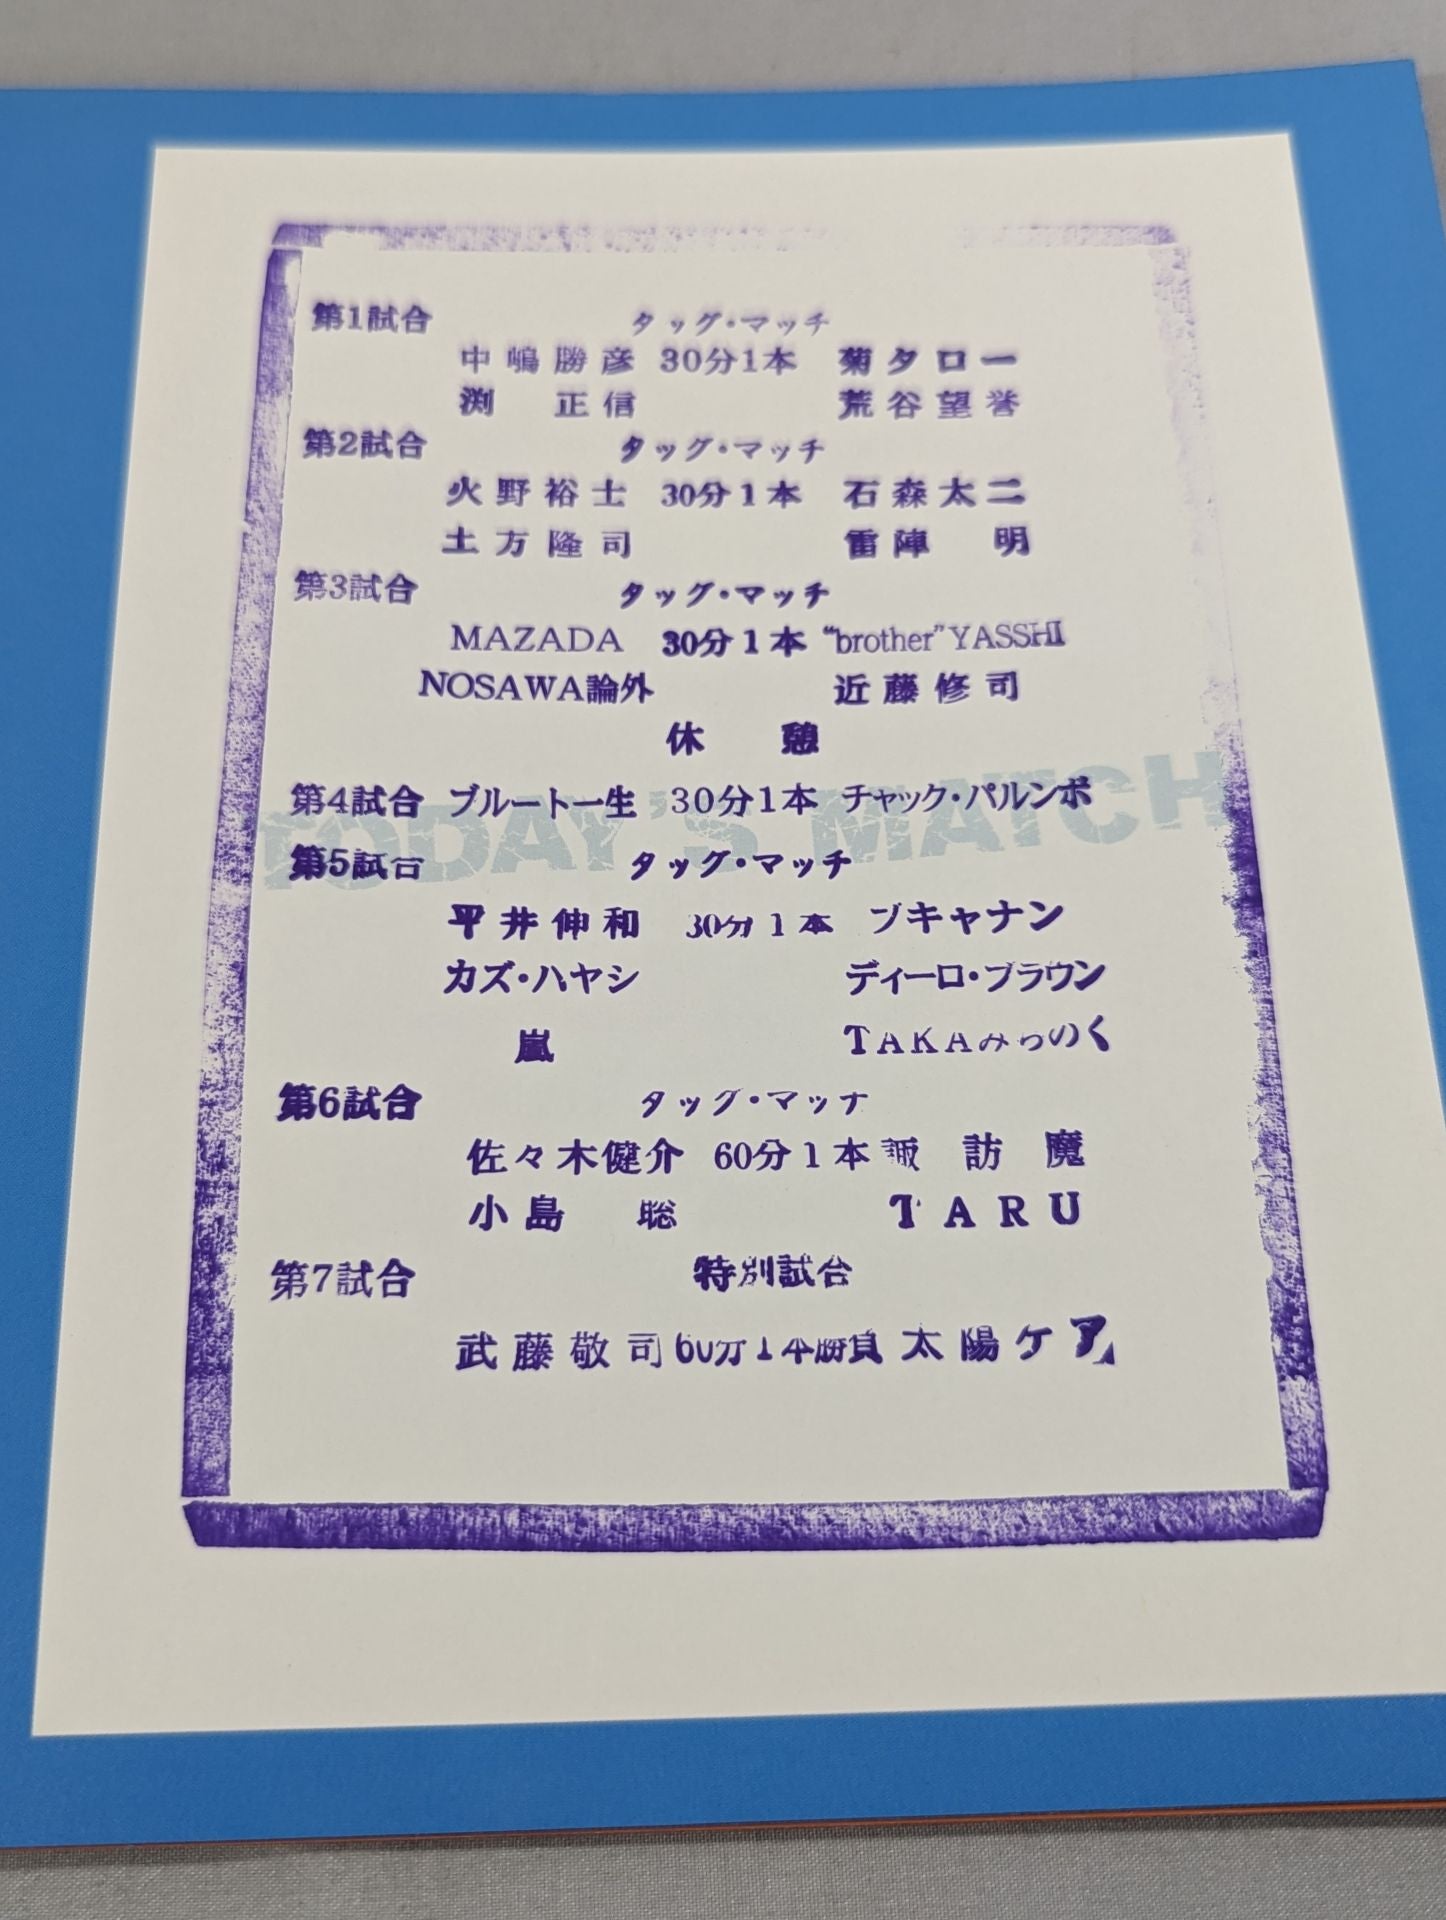 第1試合 タッグ・マッチ
中嶋勝彦 30分1本 菊タロー
渕 正信 荒谷望誉
第2試合 タッグ・マッチ
火野裕士 30分1本 石森太二
土方隆司 雷陣 明
第3試合 タッグ・マッチ
MAZADA 30分1本 “brother”YASSHI
NOSAWA論外 近藤修司
休 憩
第4試合 ブルート一生 30分1本 チャック・パルンボ
TODAY'S MATCH
第5試合 タッグ・マッチ
平井伸和 30分1本 ブキャナン
カズ・ハヤシ ディーロ・ブラウン
嵐 TAKAみちのく
第6試合 タッグ・マッチ
佐々木健介 60分1本 諏訪魔
小島 聡 TARU
第7試合 特別試合
武藤敬司 60分1本勝負 太陽ケア